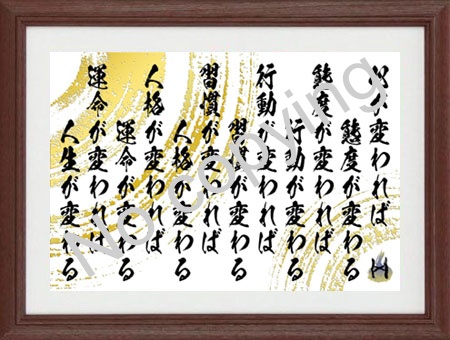 心が変われば
態度が変わる
態度が変われば
行動が変わる
行動が変われば
習慣が変わる
習慣が変われば
人格が変わる
人格が変われば
運命が変わる
運命が変われば
人生が変わる
No copying